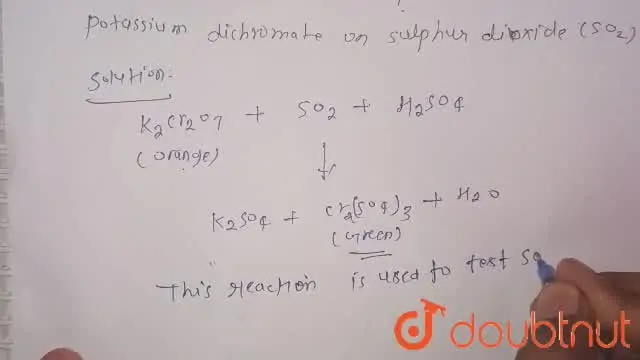 Potassium dichromate on sulphur dioxide (SO2)
Solution:
K2Cr2O7 + SO2 + H2SO4
(Orange)
↓
K2SO4 + Cr2(SO4)3 + H2O
(Green)
This reaction is used to test SO
doubtnut